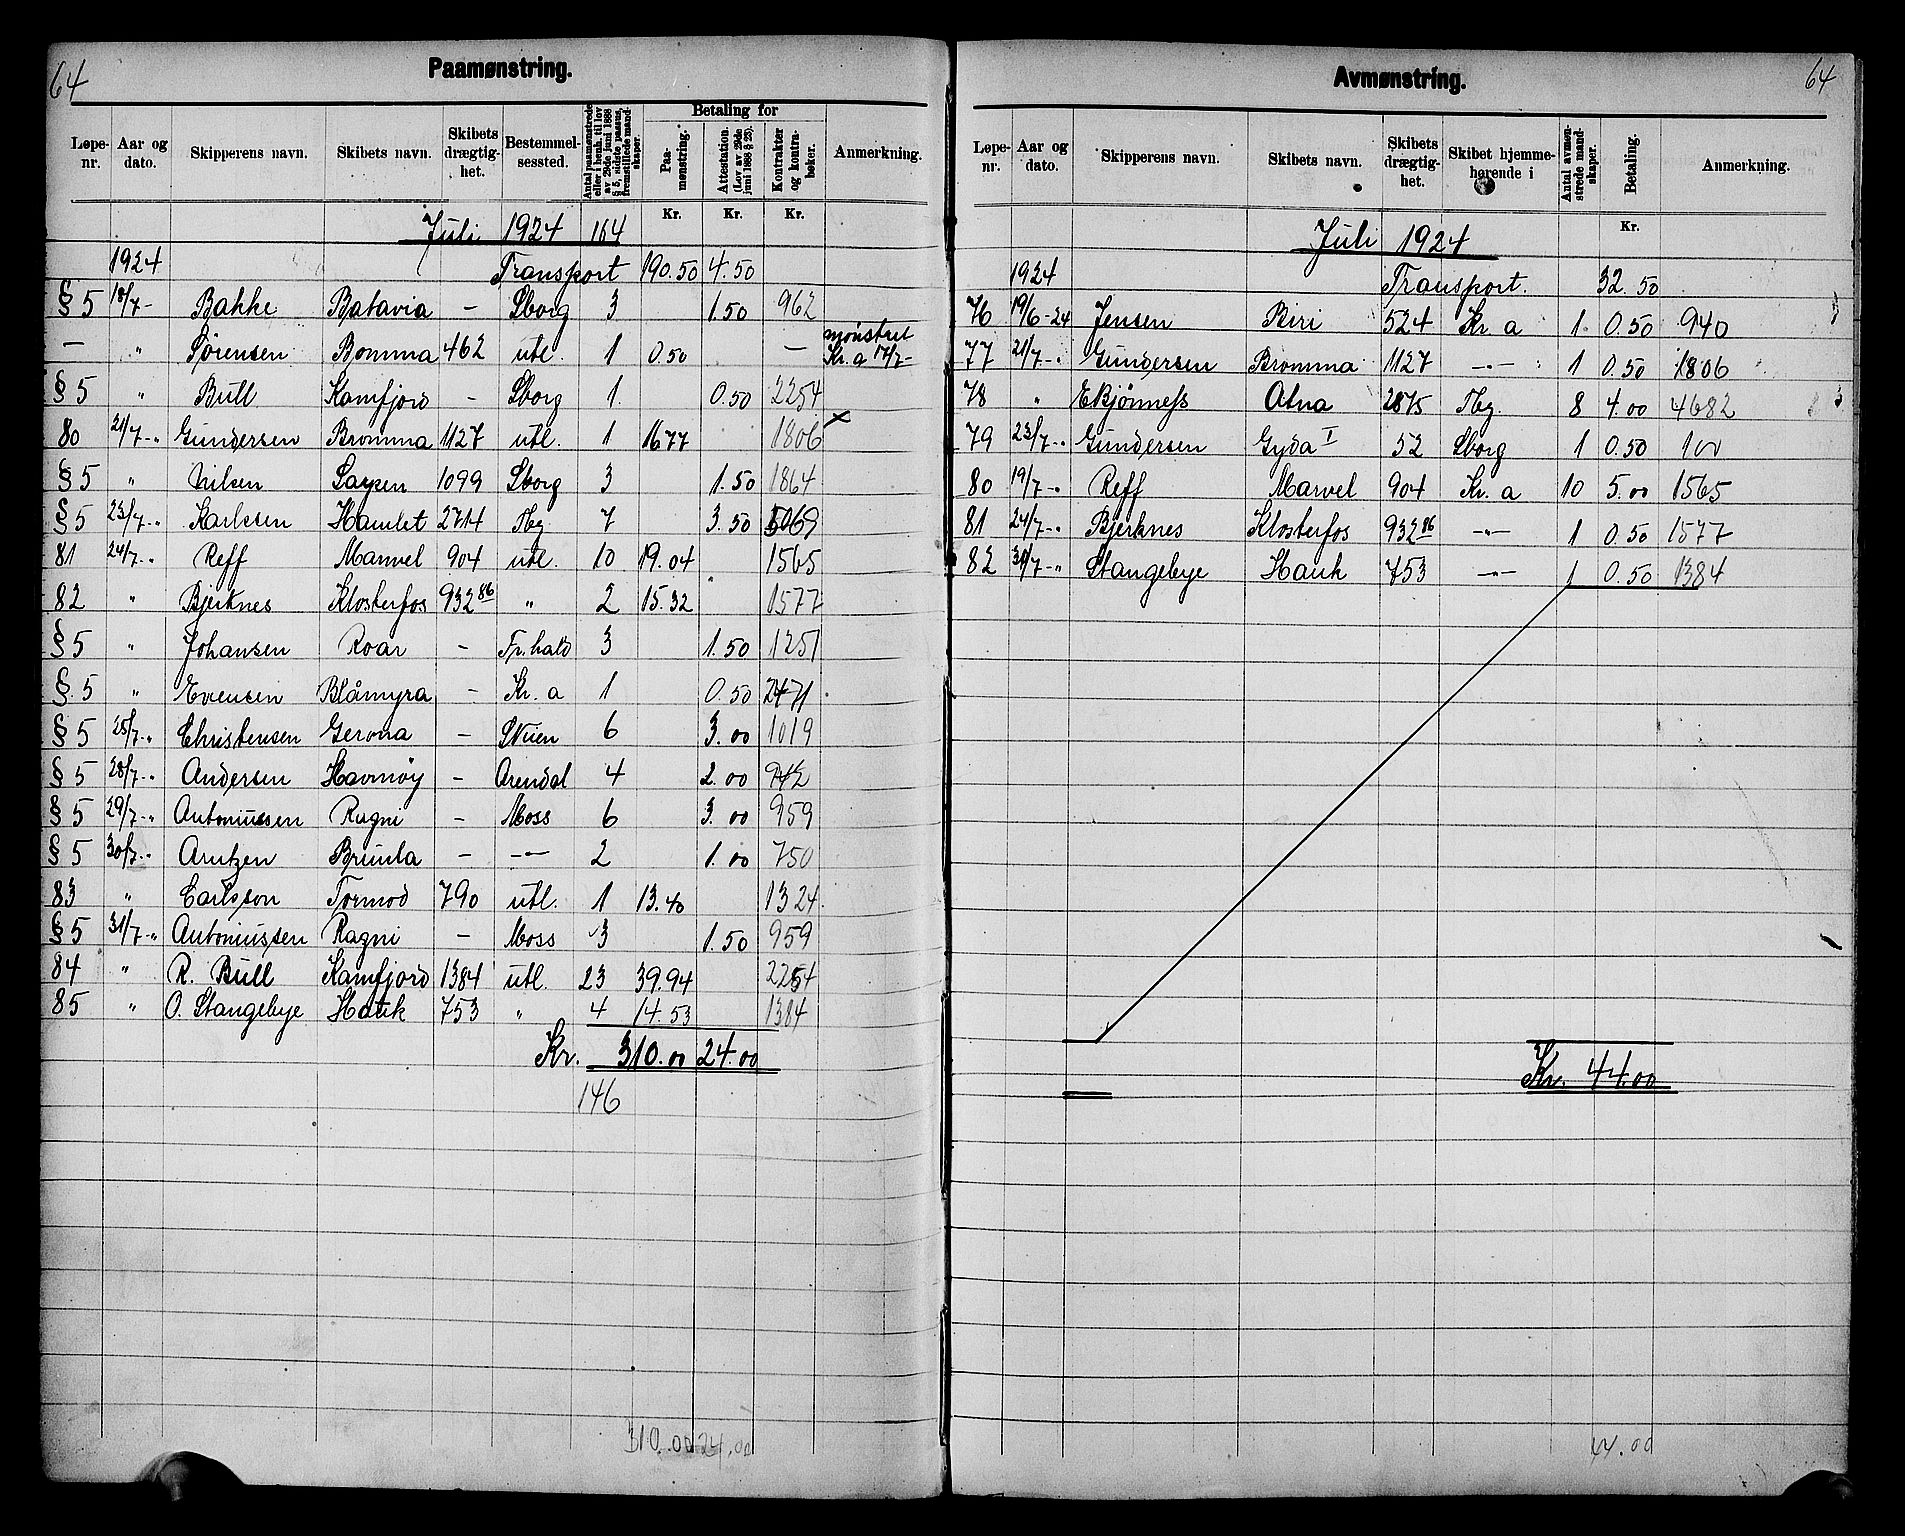 64
Paamønstring.
Løpe-nr. Aar og dato. Skipperens navn. Skibets navn. Skibets drægtighet. Bestemmelsessted. Antal paamønstrede eller i henh. til lov av 29de juni 1888 § 5, sidste passus, fremstillede mandskaper. Betaling for Paamønstring. Attestation. (Lov av 29de juni 1888 § 23). Kontrakter og kontrabøker. Anmerkning.
Kr. Kr. Kr.
Juli 1924 164
1924 Transport 190.50 4.50
§ 5 18/7- Bakke Batavia - Sborg 3 1.50 962
— " Sørensen Bomma 462 utl. 1 0.50 — mønstret Kr. a 17/7-
§ 5 " Bull Kamfjord - Sborg 1. 0.50 2254
80 21/7-" Gundersen Bromma 1127 utl. 1 16 77 1806 x
§ 5 " Nilsen Saysen 1099 Sborg 3 1.50 1864
§ 5 23/7-" Karlssen Hamlet 2714 Tbg 7 3.50 5069
81 24/7-" Reff Marvel 904 utl. 10 19.04 1565
82 " Bjerknes Klosterfos 932 86 " 2 15.32 1577
§ 5 " Johansen Roar - Fr.hald 3 1.50 1251
§. 5 " Evensen Blåmyra - Kr. a 1 0.50 2471
§ 5 25/7-" Christensen Gerona - Skien 6 3.00 1019
§ 5 28/7-" Andersen Havmøy - Arendal 4 2.00 942
§ 5 29/7-" Antoniussen Ragni - Moss 6 3.00 959
§ 5 30/7-" Arntzen Brunla - -"- 2 1.00 750
83 " Carlsson Tormod 790 utl. 1 13.40 1324
§ 5 31/7-" Antoniussen Ragni - Moss 3 1.50 959
84 " R. Bull Kamfjord 1384 utl. 23 39.94 2254
85 " O. Stangebye Hauk 753 " 4 14.53 1384
Kr. 310.00 24.00
146
310.00 24.00
64
Avmønstring.
Løpe-nr. Aar og dato. Skipperens navn. Skibets navn. Skibets drægtighet. Skibet hjemmehørende i Antal avmønstrede mandskaper. Betaling. Anmerkning.
Kr.
Juli 1924
1924 Transport. 32.50
76 19/6-24 Jensen Biri 524 Kr a 1 0.50 940
77 21/7-" Gundersen Bromma 1127 -"- 1 0.50 1806
78 " Ekjønness Atna 2875 Tbg. 8 4.00 4682
79 23/7-" Gundersen Gyda I 52 Sborg 1 0.50 100
80 19/7-" Reff Marvel 904 Kr. a 10 5.00 1565
81 24/7-" Bjerknes Klosterfos 932 86 -"- 1 0.50 1577
82 31/7-" Stangebye Hauk 753 -"- 1 0.50 1384
Kr. 44.00
44.00